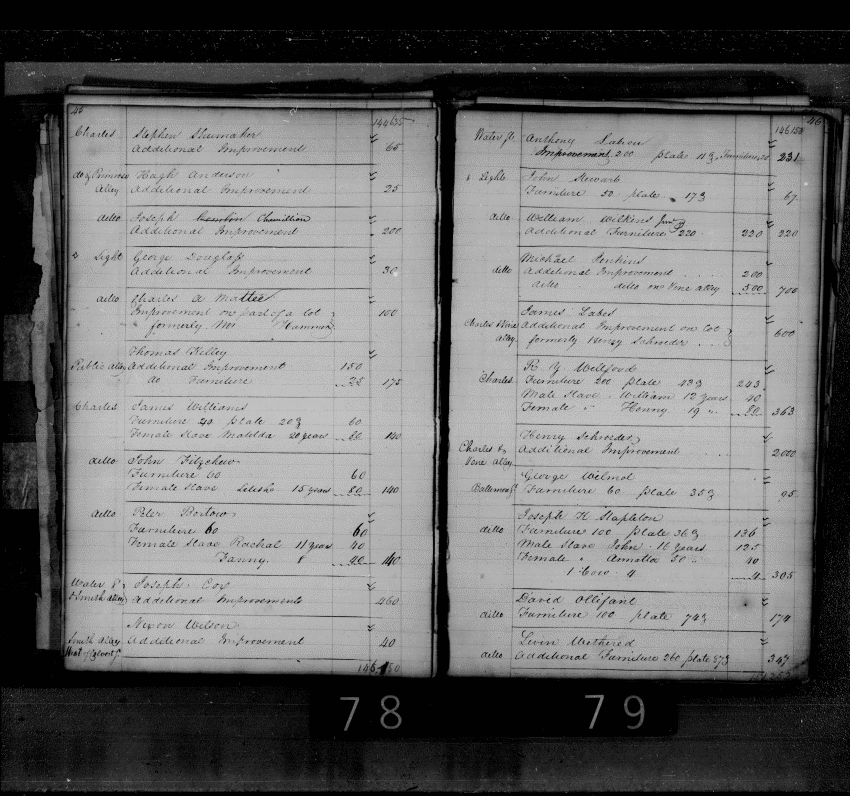 45
144635
Charles Stephen Shumaker
Additional Improvement 65
do & Primrose Hugh Anderson
Alley Additional Improvement 25
ditto Joseph Chamillion
Additional Improvement 200
& Light George Douglass
Additional Improvement 30
ditto Charles A Mattee
Improvement on part of a lot 100
formerly Mr Hammon
Thomas Kelley
Public alley Additional Improvement 150
do Furniture 25 175
Charles James Williams
Furniture 40 plate 20 60
Female Slave Matilda 20 years 80 140
ditto John Fitzchew
Furniture 60 60
Female Slave 15 years 80 140
ditto Peter Barlow
Furniture 60 60
Female Slave Rachal 11 year 40
Fanny 8 40 140
Water & Joseph Cox
Smith alley Additional Improvements 460
Nixon Wilson
Smith Alley Additional Improvement 40
West of
146150
46
146150
Water st Anthony
Improvement 200 plate 11 Furniture 20 231
& Light John Stewart
Furniture 50 plate 17 67
ditto William Wilkens Junr
Additional Furniture 220 220 220
Michael Jenkins
ditto Additional Improvement 200
ditto ditto on Vine alley 500 700
James Labes
Charles & Vine Additional Improvement on lot 600
alley formerly Henry Schroeder
R. Y. Wellford
Charles Furniture 200 plate 43 243
Male Slave William 12 years 40
Female " Henny 19 " 80 363
Henry Schroeder
Charles & Additional Improvement 2000
Vine Alley
George Wilmot
Furniture 60 plate 35 95
Joseph H Stapleton
ditto Furniture 100 plate 36 136
Male Slave John 16 years 125
Female " Annatta 50 " 40
1 Cow 4 4 305
David Ollifant
ditto Furniture 100 plate 74 174
Levin Wethered
ditto Additional Furniture 260 plate 87 347
78
79